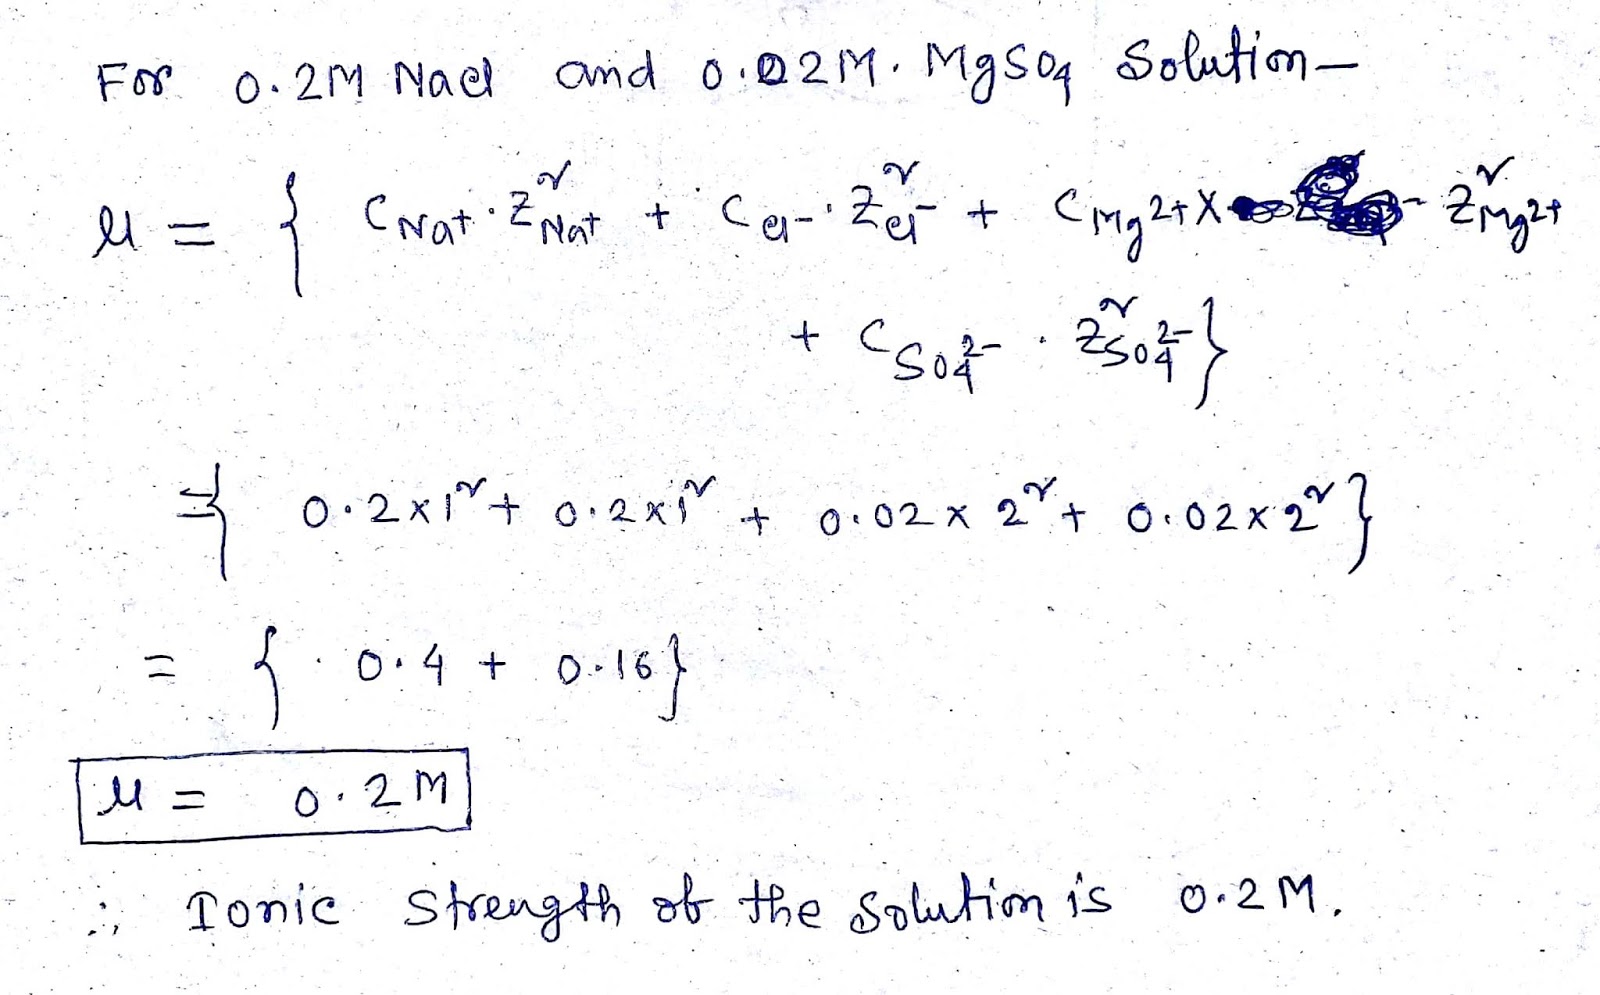 For 0.2M NaCl and 0.02M. MgSO4 Solution—
μ = { C Na+ · Z² Na+ + C Cl- · Z² Cl- + C Mg2+ × Z² Mg2+
+ C SO4 2- · Z² SO4 2- }
= { 0.2×1² + 0.2×1² + 0.02×2² + 0.02×2² }
= { 0.4 + 0.16 }
μ = 0.2 M
∴ Ionic Strength of the Solution is 0.2M.